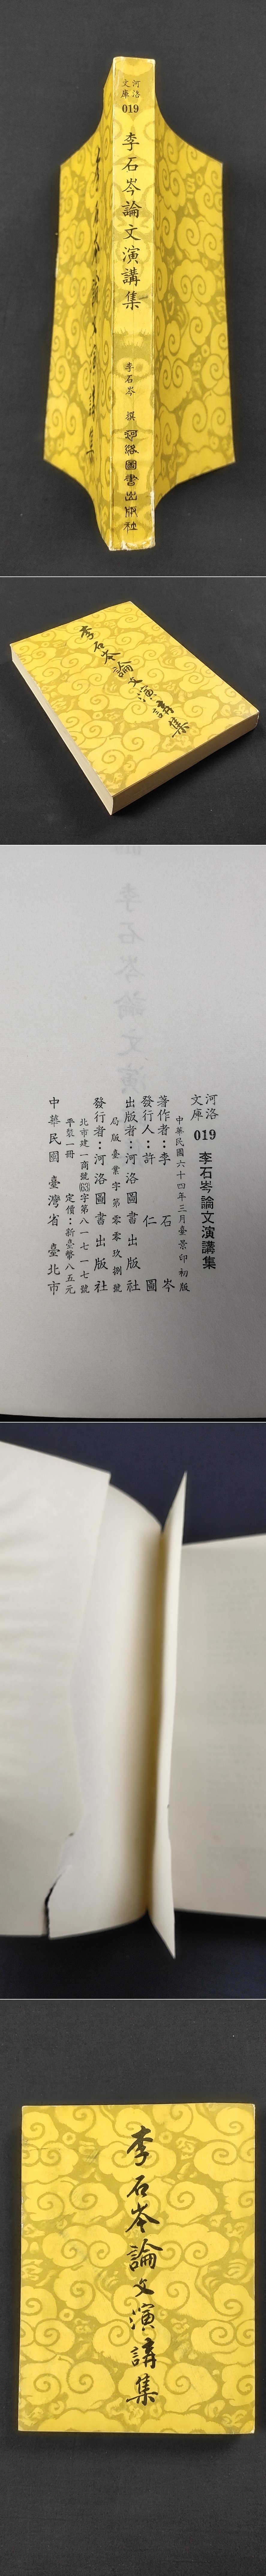 河洛
文庫
019
李石岑論文演講集
李石岑 撰
河洛圖書出版社
李石岑論文演講集
李石岑論文演講集
河洛
文庫
019 李石岑論文演講集
中華民國六十四年三月臺景印初版
著作者：李石岑
發行人：許仁圖
出版者：河洛圖書出版社
局版臺業字第零零玖捌號
發行者：河洛圖書出版社
北市建一商號(63)字第八一七一七號
平裝一冊 定價：新臺幣八五元
中華民國 臺灣省 臺北市
李石岑論文演講集